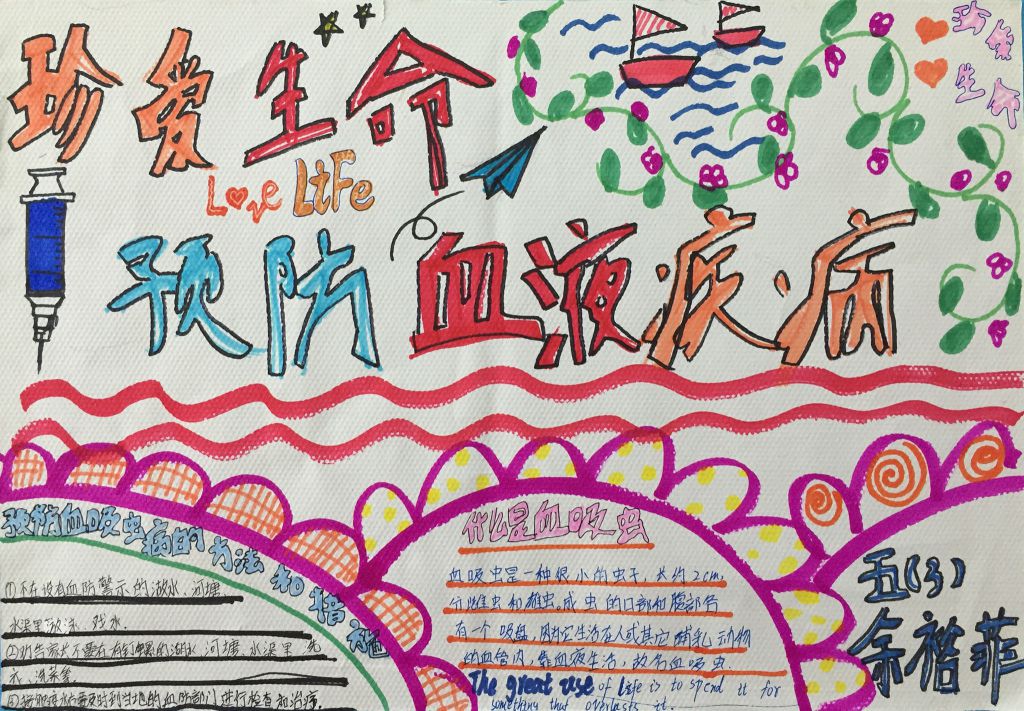 珍爱生命
珍爱生命
Love LiFe
预防血液疾病
预防血吸虫病的方法和措施
①不在设有血防警示的湖水、河塘、
水渠里游泳、戏水。
②劝告家长不要在有钉螺的湖水、河塘、水渠里洗
衣、洗菜等。
③接触疫水后要及时到当地的血防部门进行检查和治疗。
什么是血吸虫
血吸虫是一种很小的虫子，长约2cm，
分雌虫和雄虫。成虫的口部和腹部各
有一个吸盘，因为它生活在人或其它哺乳动物
的血管内，靠血液生活，故名血吸虫。
The great use of life is to spend it for
something that overlasts it.
五(3)
余褶菲